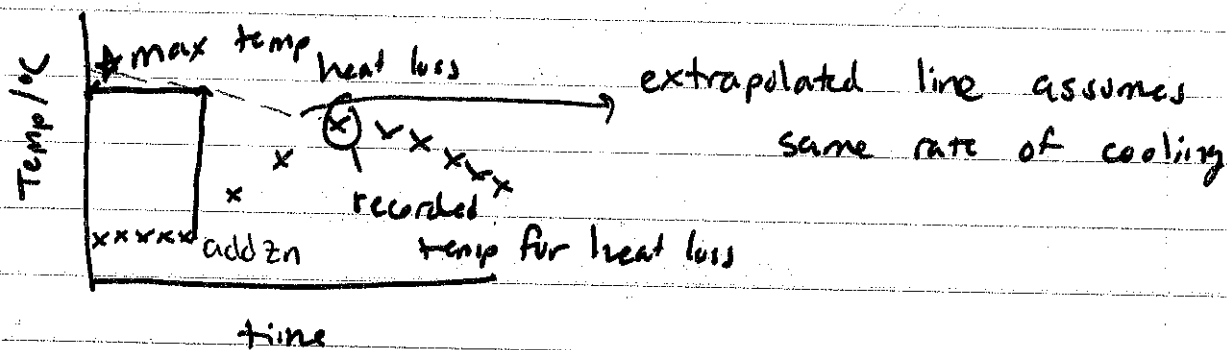 Temp/°C
max temp
heat loss
extrapolated line assumes
same rate of cooling
recorded
add Zn
temp for heat loss
time